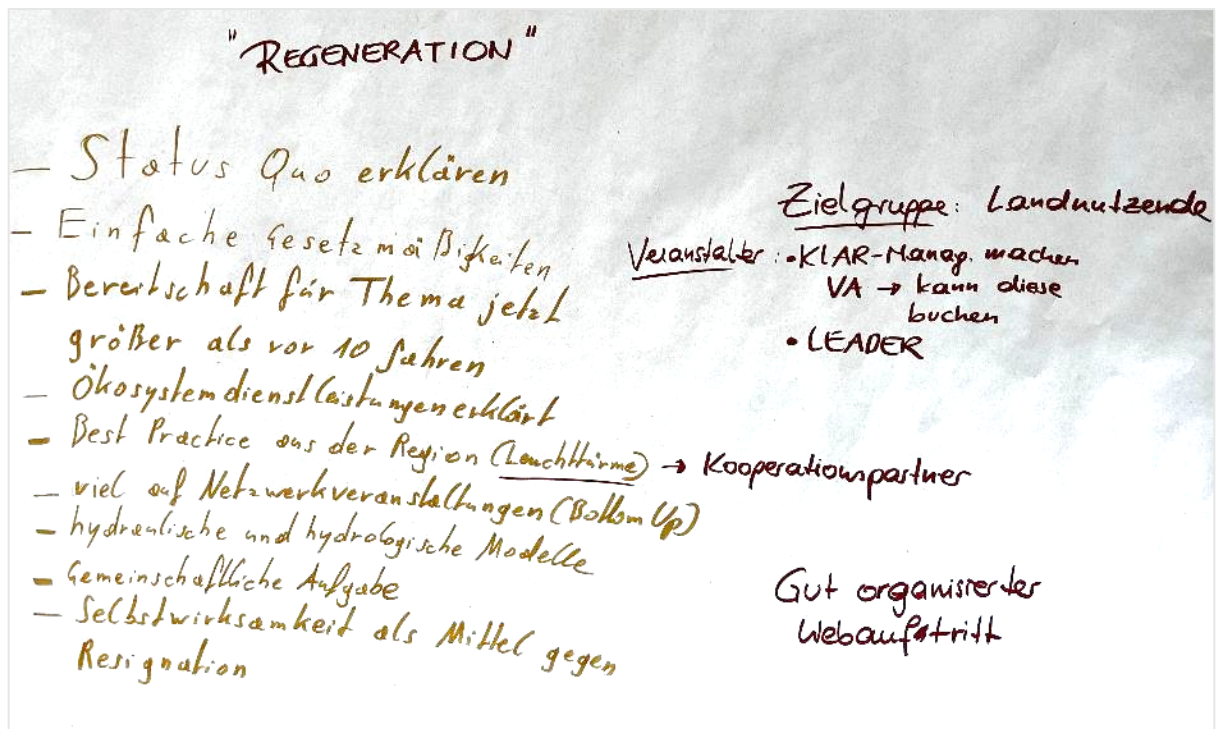 "REGENERATION"
– Status Quo erklären
– Einfache Gesetzmäßigkeiten
– Bereitschaft für Thema jetzt
größer als vor 10 Jahren
– Ökosystemdienstleistungen erklärt
– Best Practice aus der Region (Leuchttürme) → Kooperationspartner
– viel auf Netzwerkveranstaltungen (Bottom Up)
– hydraulische und hydrologische Modelle
– Gemeinschaftliche Aufgabe
– Selbstwirksamkeit als Mittel gegen
Resignation
Zielgruppe: Landnutzende
Veranstalter: • KLAR-Manag. machen
VA → kann diese
buchen
• LEADER
Gut organisierter
Webauftritt